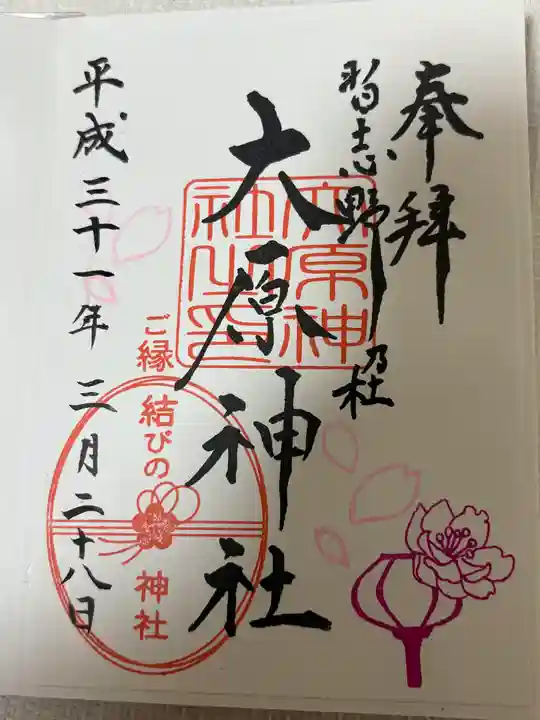 奉拝
習志野乃杜
大原神社
大原神社之印
ご縁結びの神社
平成三十一年三月二十八日